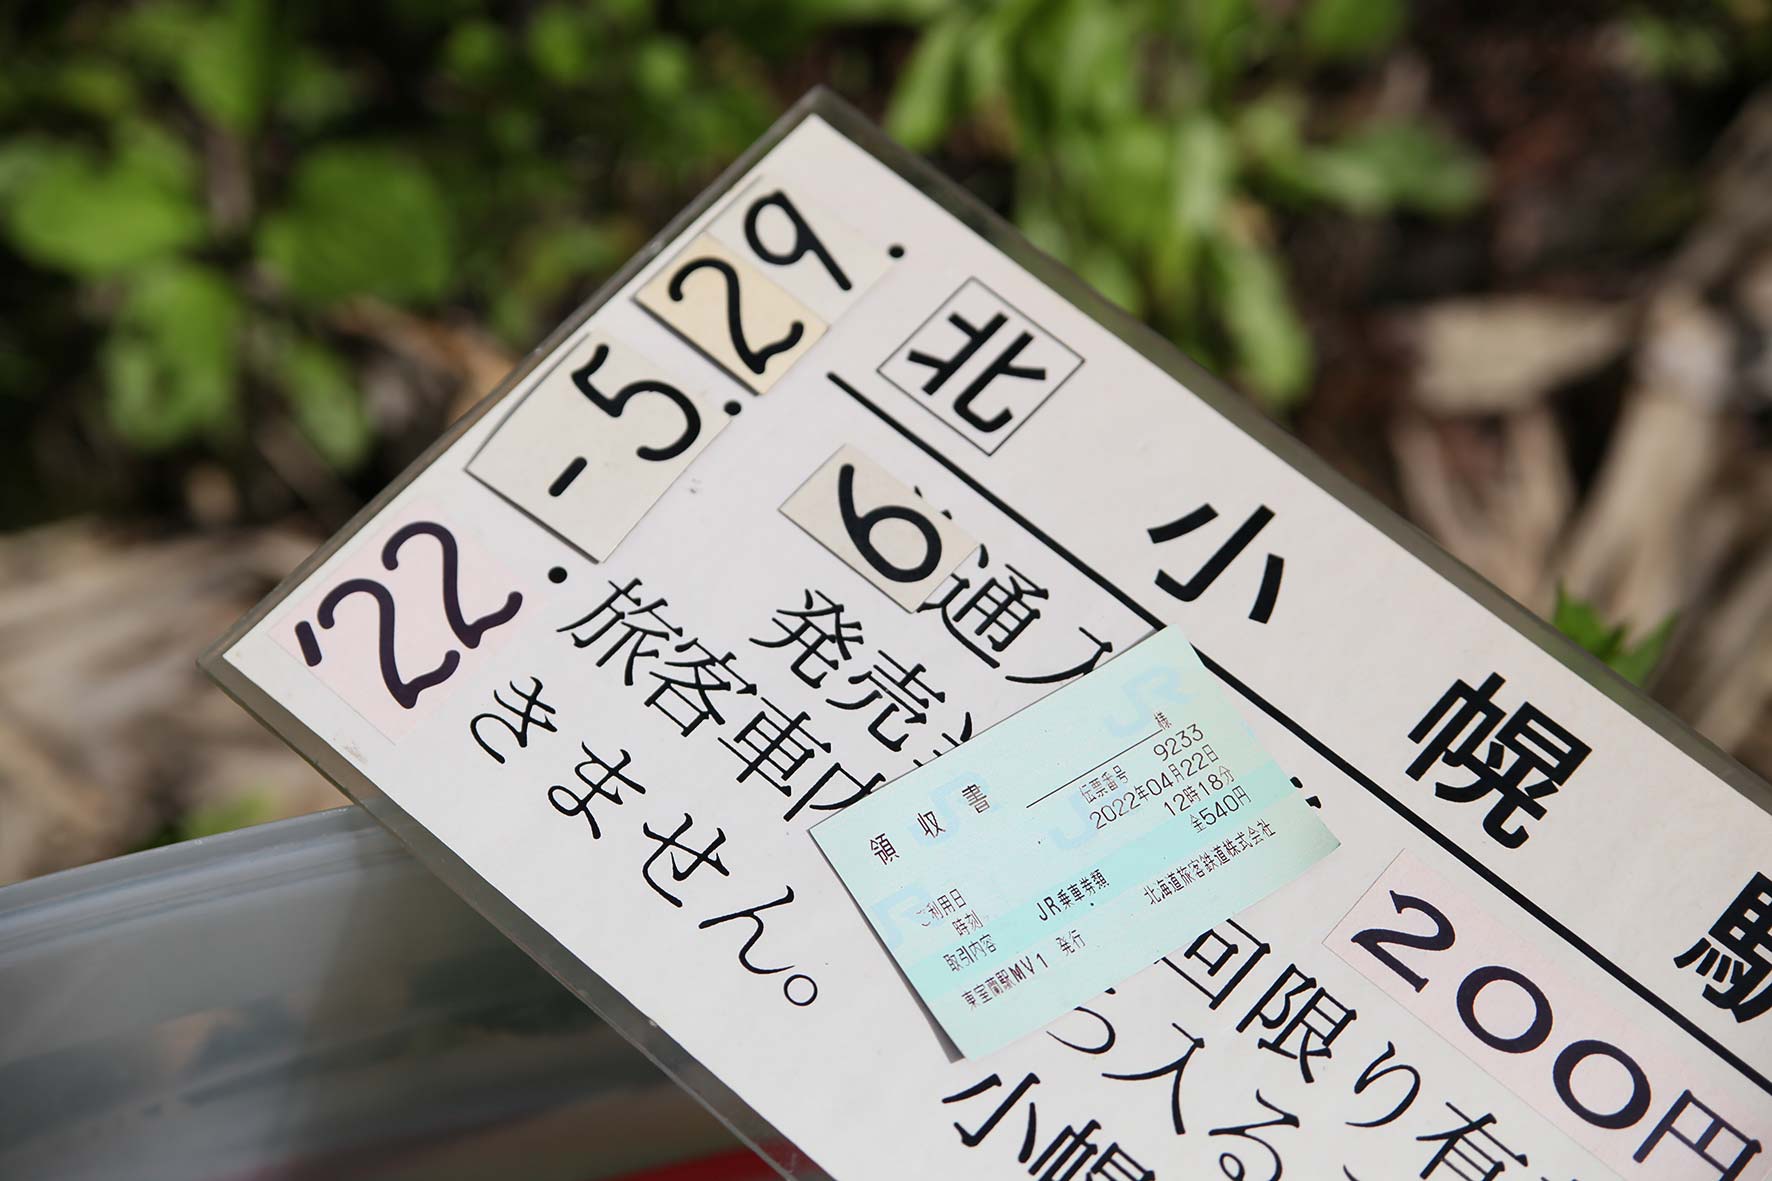 北 小 幌 駅
200円
6 通入
回限り有
発売
っ入る
旅客車内
小幌
きません。
'22.-5.29.
領収書
様
伝票番号 9233
2022年04月22日
12時18分
ご利用日
時刻
金540円
取引内容 JR乗車券類
北海道旅客鉄道株式会社
東室蘭駅MV1 発行